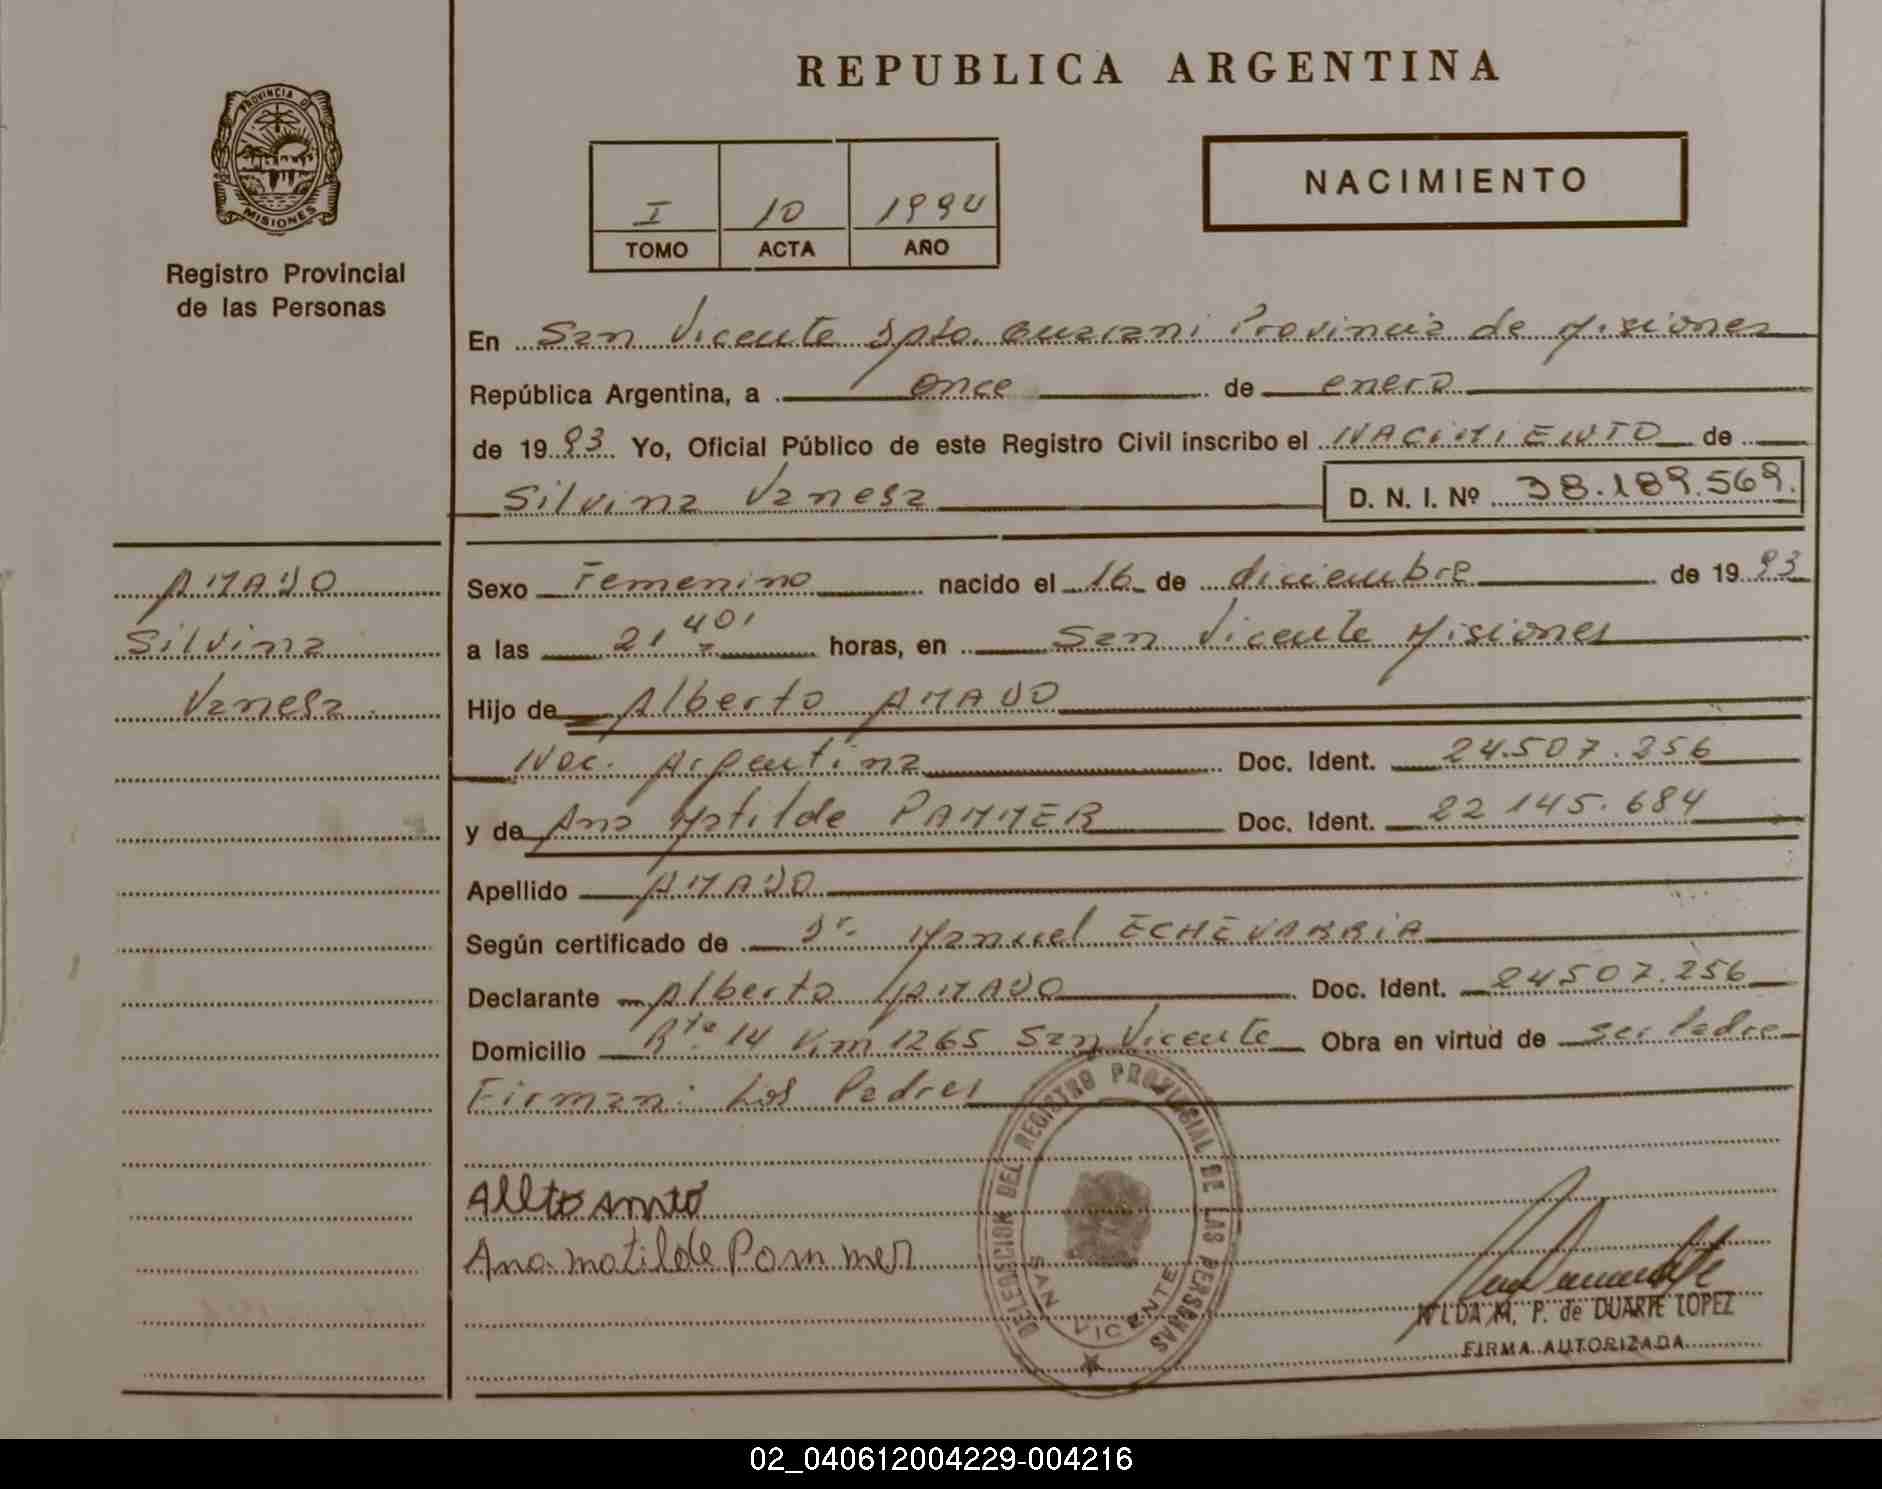 REPUBLICA ARGENTINA
PROVINCIA D
MISIONES
Registro Provincial
de las Personas
NACIMIENTO
I 10 1994
TOMO ACTA AÑO
En San Vicente Dpto. Guarani Provincia de Misiones
República Argentina, a once de enero
de 1993 Yo, Oficial Público de este Registro Civil inscribo el NACIMIENTO de
Silvina Vanesa D. N. I. Nº 38.189.569.
AMADO
Silvina
Vanesa
Sexo Femenino nacido el 16 de diciembre de 1993
a las 21,40' horas, en San Vicente Misiones
Hijo de Alberto AMADO
Nac. Argentina Doc. Ident. 24.507.256
y de Ana Matilde PAMMER Doc. Ident. 22 145.684
Apellido AMADO
Según certificado de Dr. Manuel ECHEVARRIA
Declarante Alberto AMADO Doc. Ident. 24507.256
Domicilio Rta. 14 Km 1265 San Vicente Obra en virtud de ser Padre
Firman: Los Padres
Ana matilde Pommer
DELEGACION DEL REGISTRO PROVINCIAL DE LAS PERSONAS
SAN VICENTE
NILDA M. P. de DUARTE LOPEZ
FIRMA AUTORIZADA
02_040612004229-004216